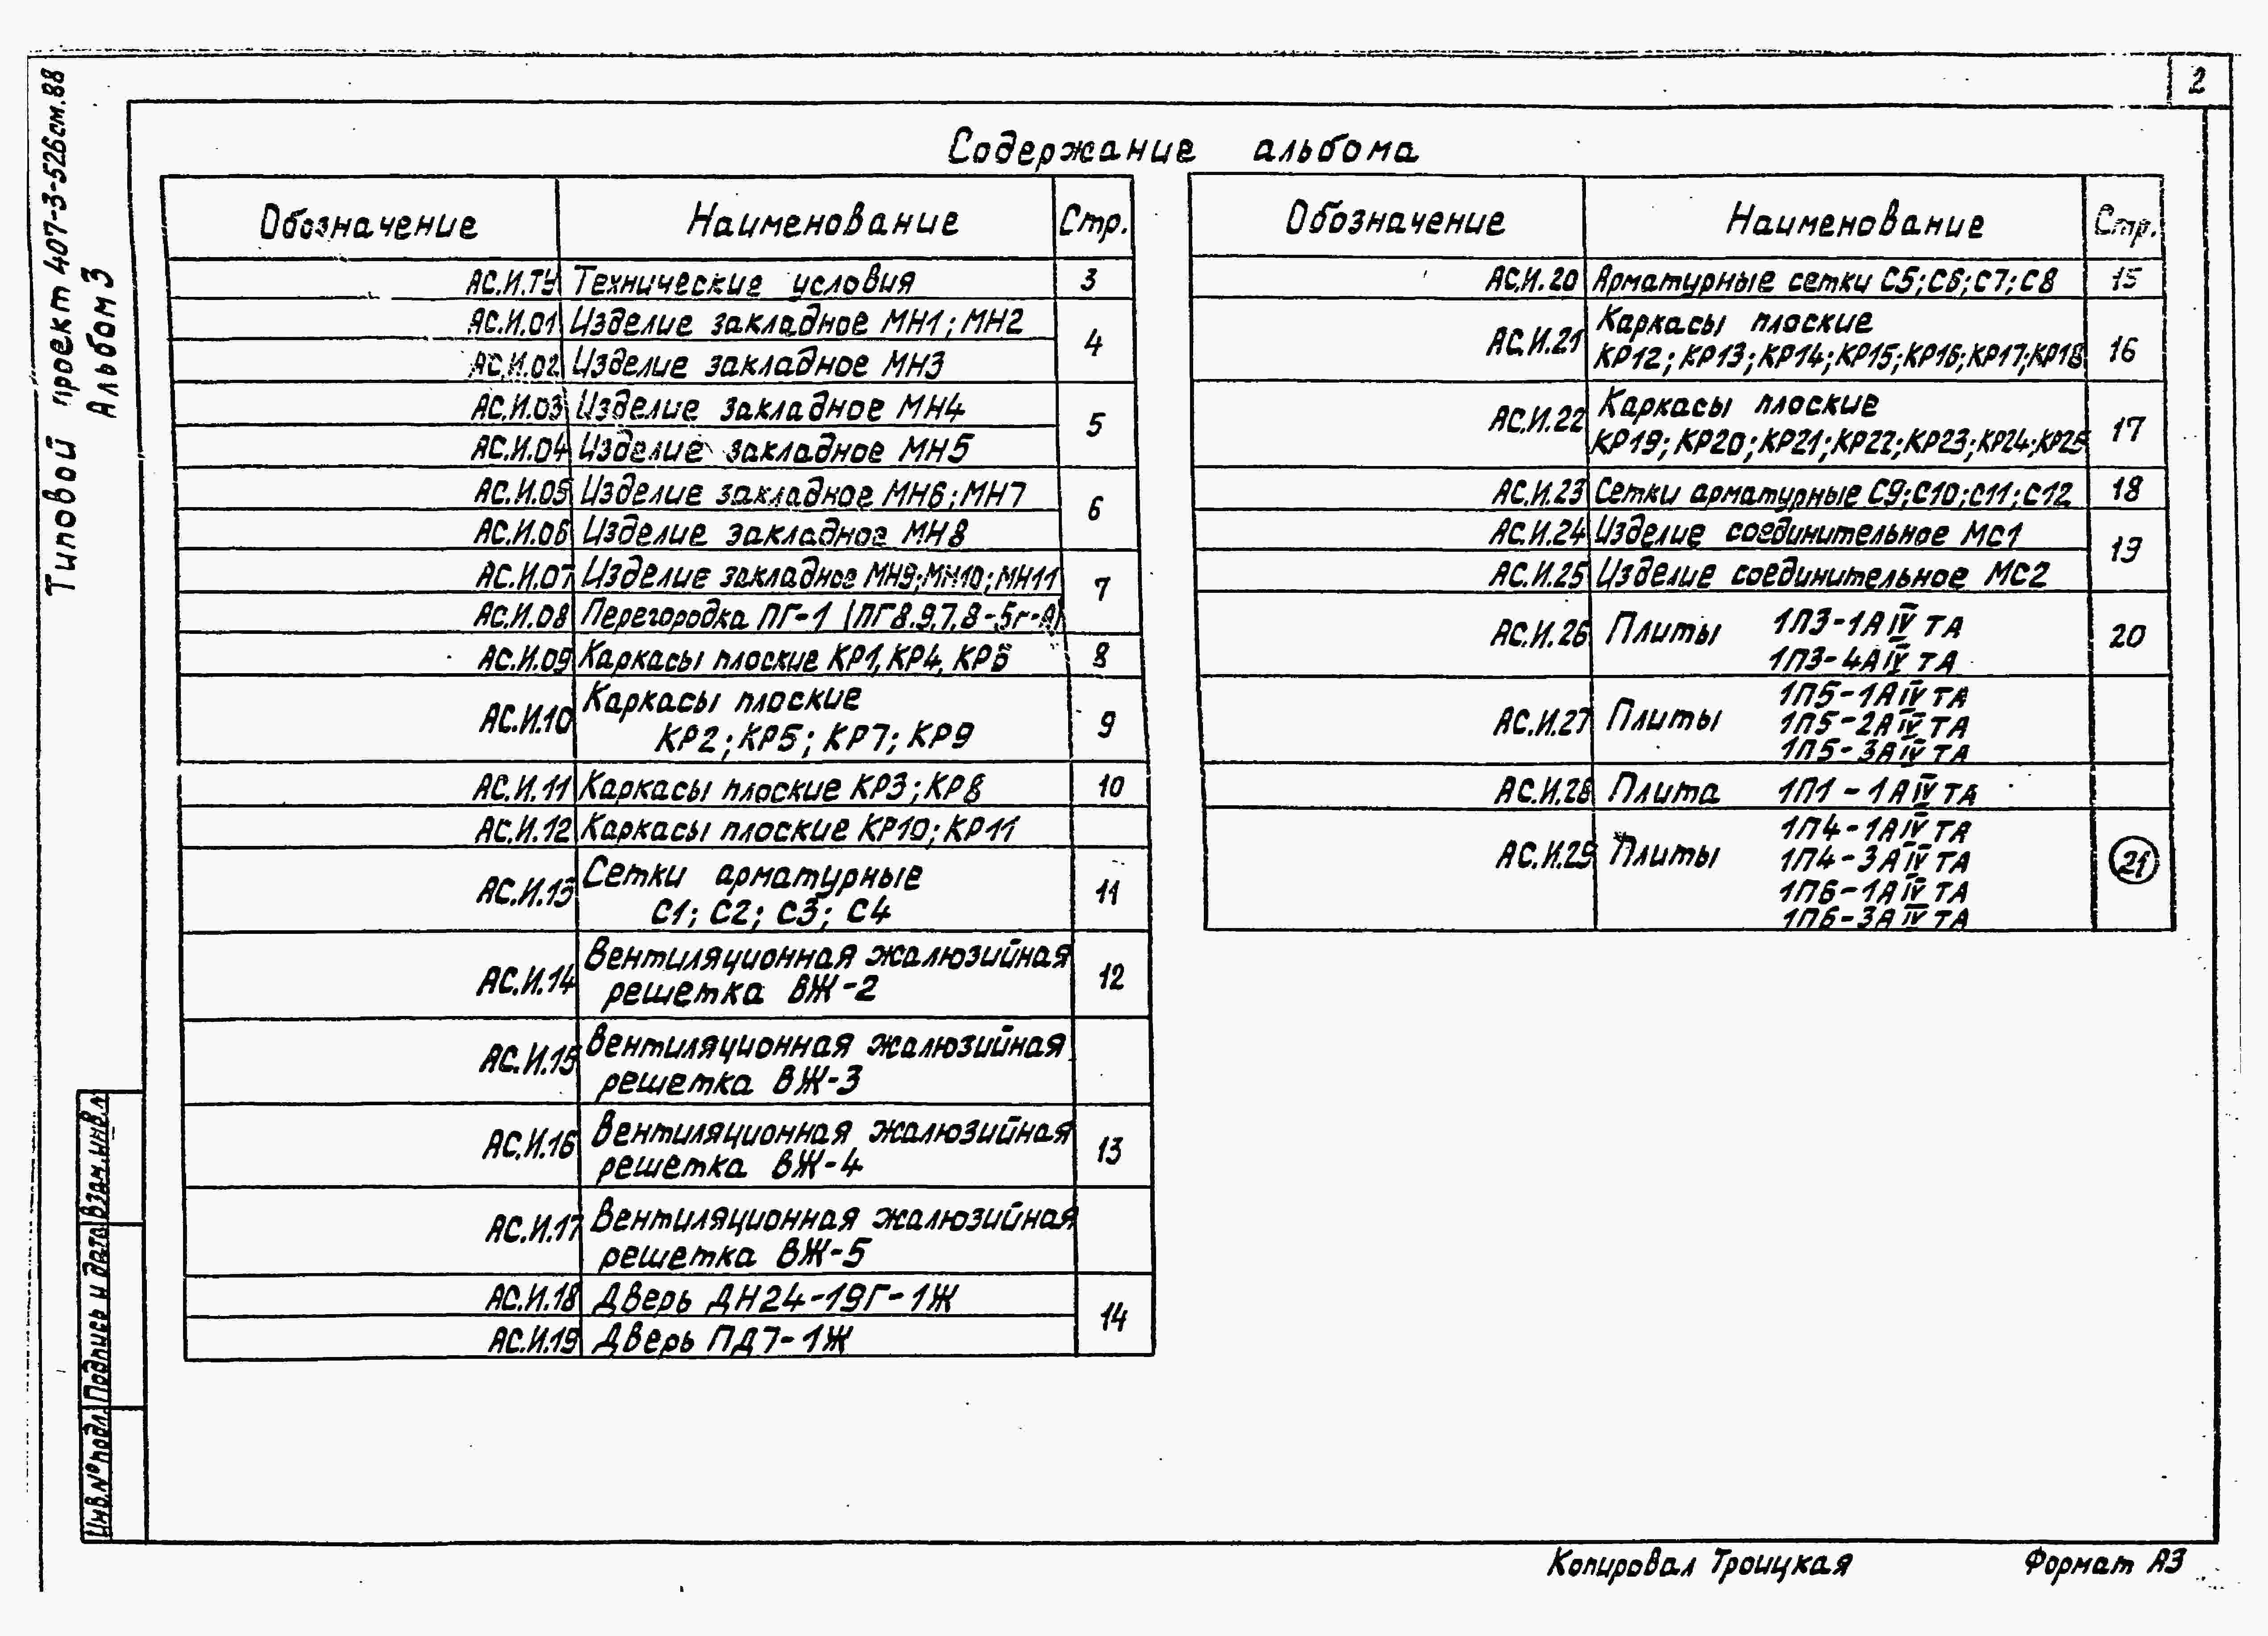 2
Типовой проект 407-3-526см.88
Альбом 3
Содержание альбома
Обозначение Наименование Стр.
АС.И.ТУ Технические условия 3
АС.И.01 Изделие закладное МН1; МН2 4
АС.И.02 Изделие закладное МН3
АС.И.03 Изделие закладное МН4 5
АС.И.04 Изделие закладное МН5
АС.И.05 Изделие закладное МН6; МН7 6
АС.И.06 Изделие закладное МН8
АС.И.07 Изделие закладное МН9; МН10; МН11 7
АС.И.08 Перегородка ПГ-1 (ПГ8.9.7.8-5г-А)
АС.И.09 Каркасы плоские КР1, КР4, КР6 8
АС.И.10 Каркасы плоские 9
КР2; КР5; КР7; КР9
АС.И.11 Каркасы плоские КР3; КР8 10
АС.И.12 Каркасы плоские КР10; КР11
АС.И.13 Сетки арматурные 11
С1; С2; С3; С4
АС.И.14 Вентиляционная жалюзийная 12
решетка ВЖ-2
АС.И.15 Вентиляционная жалюзийная
решетка ВЖ-3
АС.И.16 Вентиляционная жалюзийная 13
решетка ВЖ-4
АС.И.17 Вентиляционная жалюзийная
решетка ВЖ-5
АС.И.18 Дверь ДН24-19Г-1Ж 14
АС.И.19 Дверь ПД7-1Ж
Обозначение Наименование Стр.
АС.И.20 Арматурные сетки С5; С6; С7; С8 15
АС.И.21 Каркасы плоские 16
КР12; КР13; КР14; КР15; КР16; КР17; КР18
АС.И.22 Каркасы плоские 17
КР19; КР20; КР21; КР22; КР23; КР24; КР25
АС.И.23 Сетки арматурные С9; С10; С11; С12 18
АС.И.24 Изделие соединительное МС1 19
АС.И.25 Изделие соединительное МС2
АС.И.26 Плиты 1П3-1АIVТА 20
1П3-4АIVТА
1П5-1АIVТА
АС.И.27 Плиты 1П5-2АIVТА
1П5-3АIVТА
АС.И.28 Плита 1П1-1АIVТА
1П4-1АIVТА
АС.И.29 Плиты 1П4-3АIVТА 21
1П6-1АIVТА
1П6-3АIVТА
Взам.инв.№
Подпись и дата
Инв.№подл.
Копировал Троицкая Формат А3